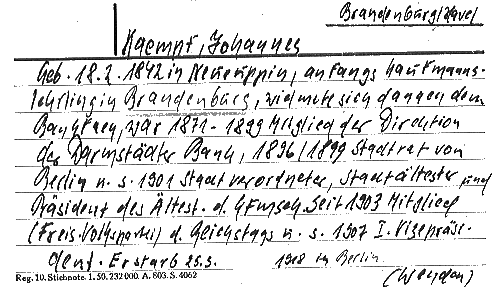 Brandenburg/Havel
Kaempf, Johannes
Geb. 18.2.1842 in Neuruppin, anfangs Kaufmanns-
lehrling in Brandenburg, widmete sich dann dem
Bankfach, war 1871-1899 Mitglied der Direktion
der Darmstädter Bank, 1896/1899 Stadtrat von
Berlin u. s. 1901 Stadtverordneter, Stadtältester und
Präsident des Ältest. d. Kfmsch. Seit 1903 Mitglied
(Freis. Volkspartei) d. Reichstags u. s. 1907 I. Vizepräsi-
dent. Er starb 25.5. 1918 in Berlin.
Reg. 10. Stichnote. 1. 50. 232 000. A. 603. S. 4062